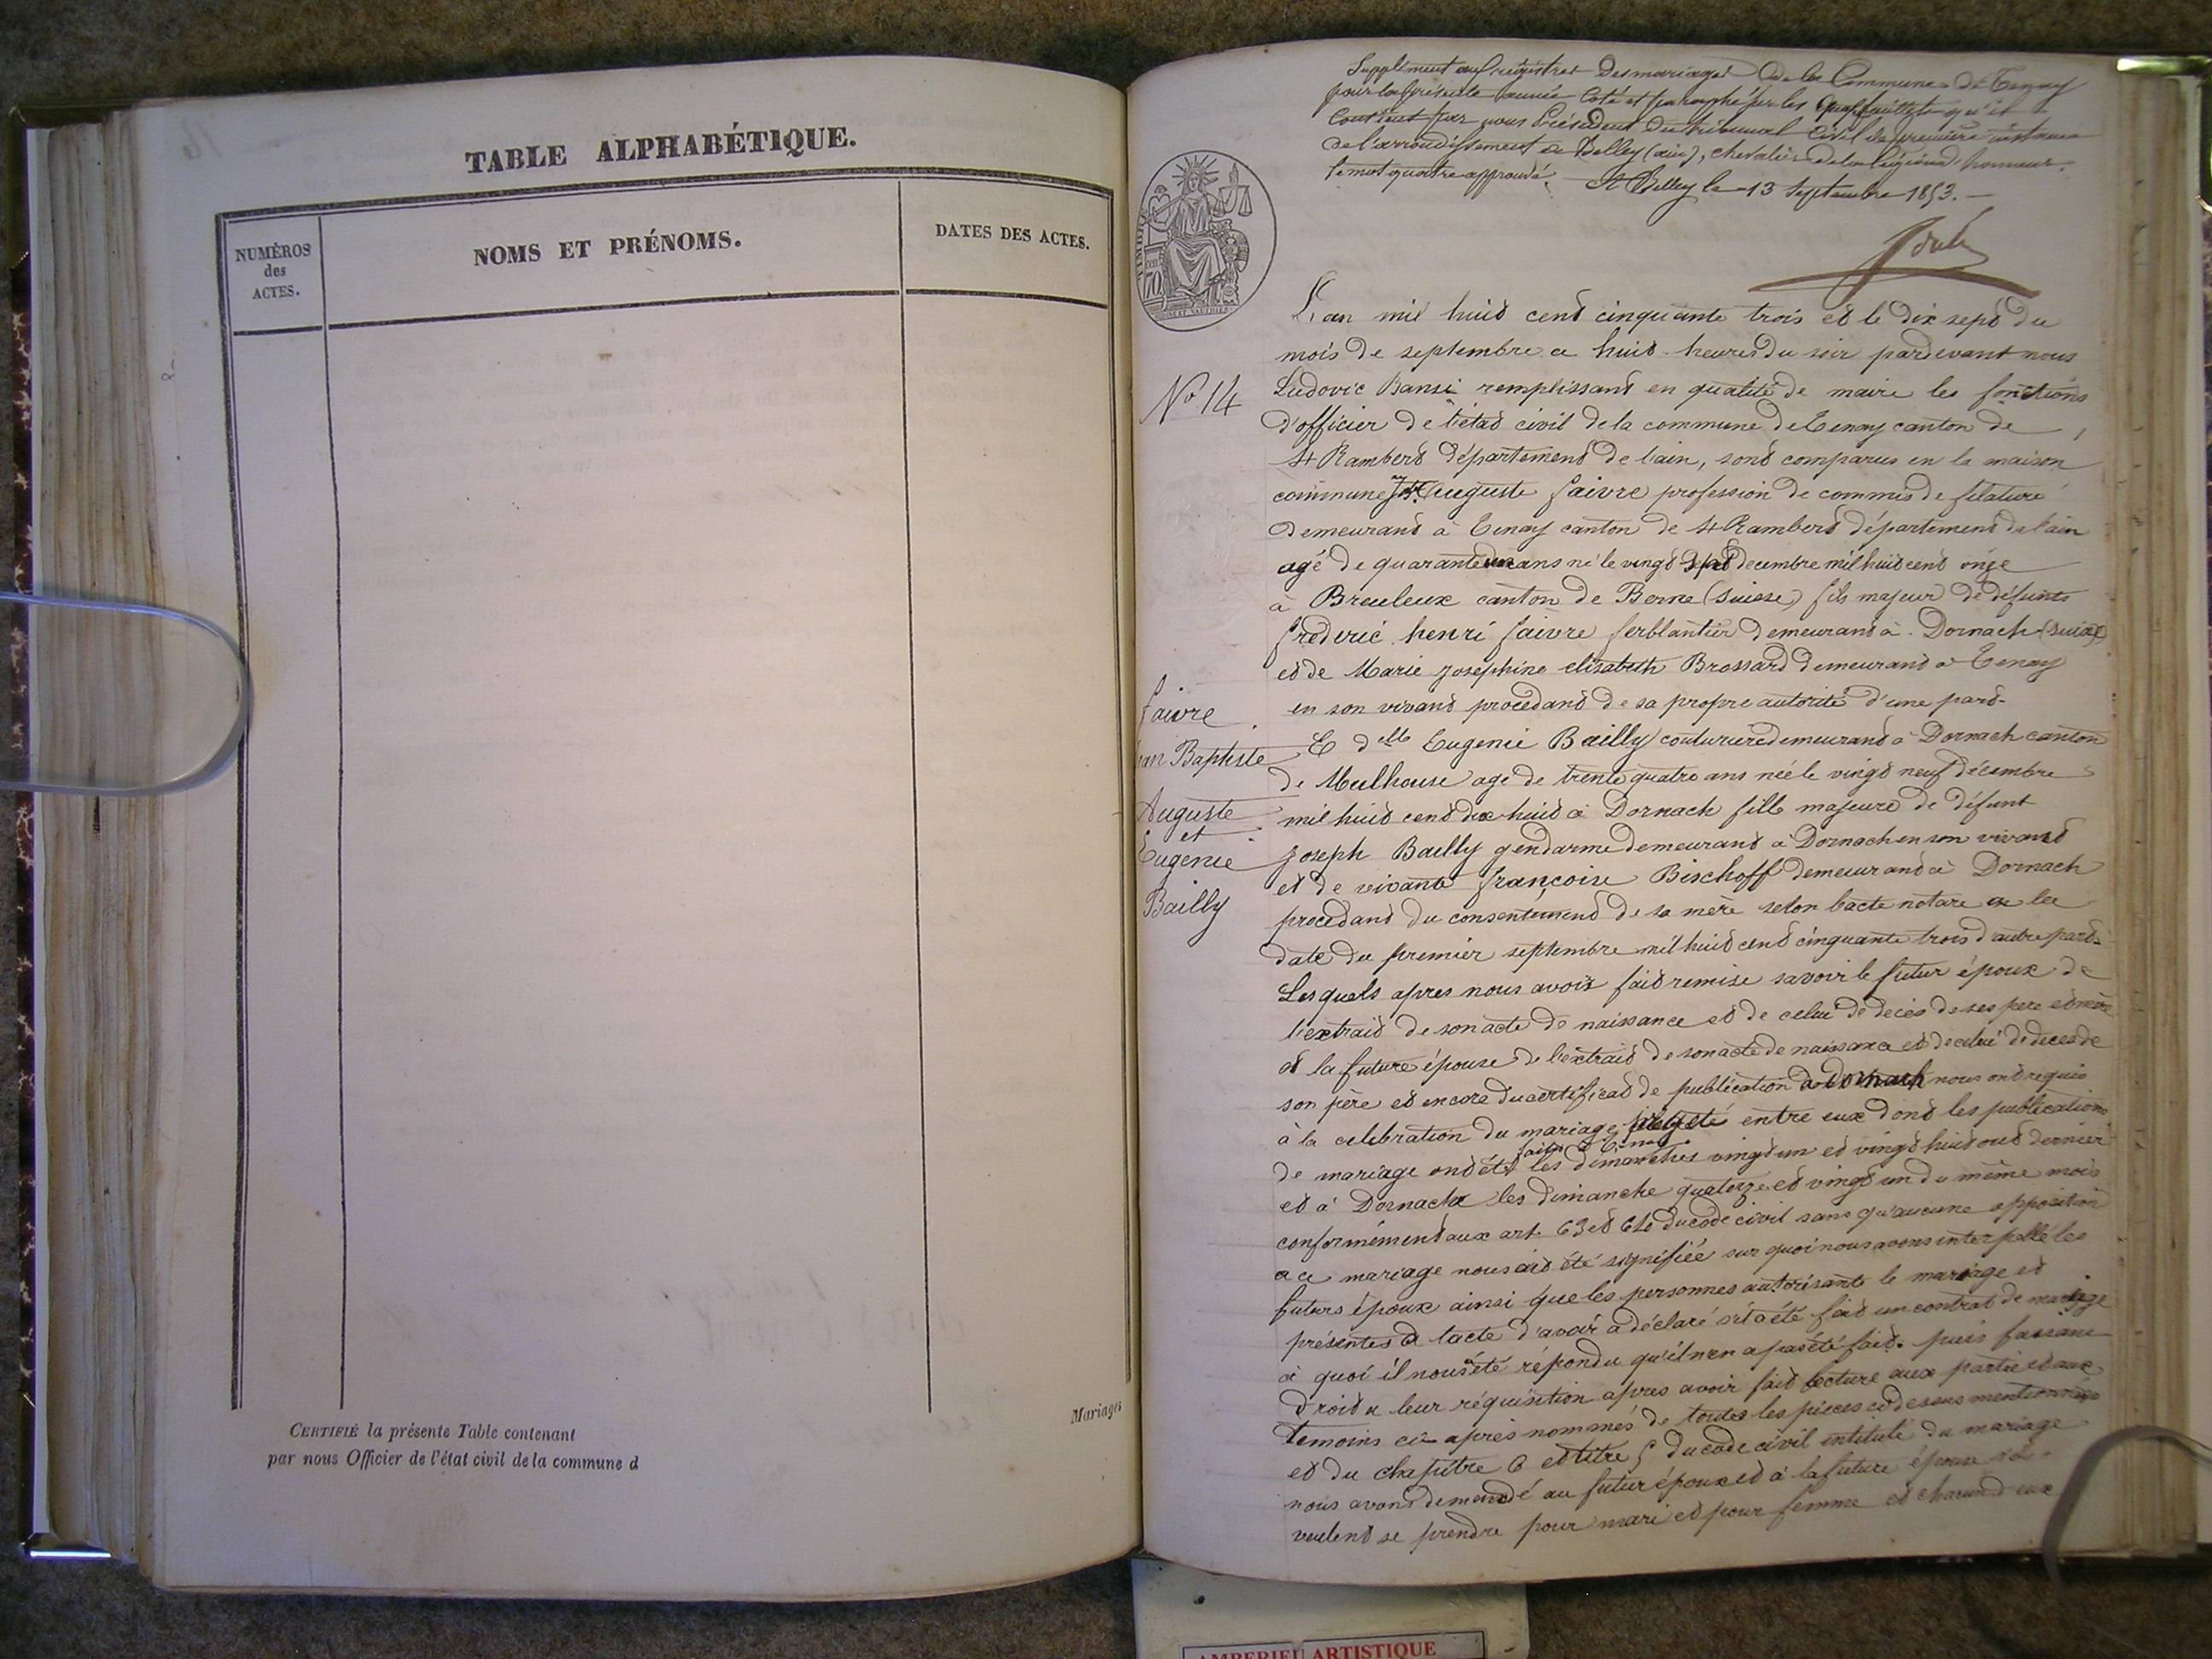 TABLE ALPHABÉTIQUE.
NUMÉROS
des
ACTES.
NOMS ET PRÉNOMS.
DATES DES ACTES.
CERTIFIÉ la présente Table contenant
par nous Officier de l'état civil de la commune d
Mariages
Supplément aux registres des mariages de la Commune de Tenay
pour la présente année coté et paraphé par les quatre feuillets qu'il
contient par nous Président du tribunal civil de première instance
de l'arrondissement de Belley (ain), chevalier de la légion d'honneur.
le mot quatre approuvé. A Belley le 13 Septembre 1853.
L'an mil huit cent cinquante trois et le dix sept du
mois de septembre a huit heures du soir pardevant nous
No 14
Ludovic Bansi remplissant en qualité de maire les fonctions
d'officier de l'état civil de la commune de Tenay canton de
St Rambert département de l'ain, sont comparus en la maison
commune Auguste faivre profession de commis de filature
demeurant à Tenay canton de St Rambert département de l'ain
agé de quarante un ans né le vingt sept decembre mil huit cent onze
à Breuleux canton de Berne (Suisse) fils majeur de défunts
frederic henri faivre ferblantier demeurant à Dornach (suisse)
et de Marie josephine elisabeth Brossard demeurant à Tenay
en son vivant procedant de sa propre autorité d'une part.
faivre
Jean Baptiste
Auguste
et
Eugenie
Bailly
Et delle Eugenie Bailly couturiere demeurant à Dornach canton
de Mulhouse age de trente quatre ans née le vingt neuf décembre
mil huit cent dix huit à Dornach fille majeure de défunt
joseph Bailly gendarme demeurant à Dornach en son vivant
et de vivante françoise Bischoff demeurant à Dornach
procedant du consentement de sa mère selon l'acte notare a la
date du premier septembre mil huit cent cinquante trois d'autre part.
Lesquels apres nous avoir fait remise savoir le futur époux de
l'extrait de son acte de naissance et de celui de deces de ses pere et mère
et la future épouse de l'extrait de son acte de naissance et de celui de deces de
son père et encore du certificat de publication à Dornach nous ont requis
à la celebration du mariage projeté entre eux dont les publications
de mariage ont été faites à Tenay les dimanches vingt un et vingt huit out dernier
et à Dornach les dimanche quatorze et vingt un du même mois
conformément aux art. 63 et 64 du code civil sans qu'aucune opposition
a ce mariage nous ait été signifiée sur quoi nous avons interpellé les
futurs époux ainsi que les personnes autorisants le mariage et
présentes à l'acte d'avoir a déclaré s'il a été fait un contrat de mariage
à quoi il nous a été répondu qu'il n'en a pas été fait. puis faisant
droit a leur réquisition apres avoir fait lecture aux partie et aux
temoins ci-après nommés de toutes les pièces ci dessus mentionnées
et du chapitre 6 et titre 5 du code civil intitulé du mariage
nous avons demandé au futur époux et à la future épouse s'il
veulent se prendre pour mari et pour femme et chacun d'eux
AMBERIEU ARTISTIQUE